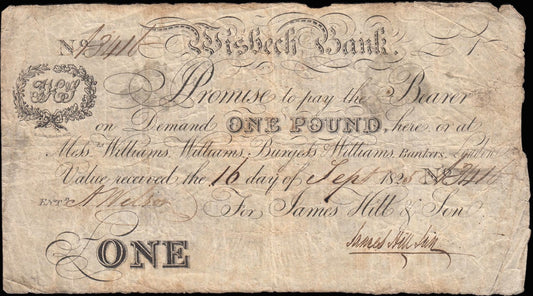 No A3416 Wisbech Bank. £1
JHS
I Promise to pay the Bearer
on Demand ONE POUND, here or at
Messrs Williams, Williams, Burgess & Williams, Bankers, London
Value received the 16 day of Sept 1825 No
Entd
For James Hill & Son
£ONE
James Hill Jun